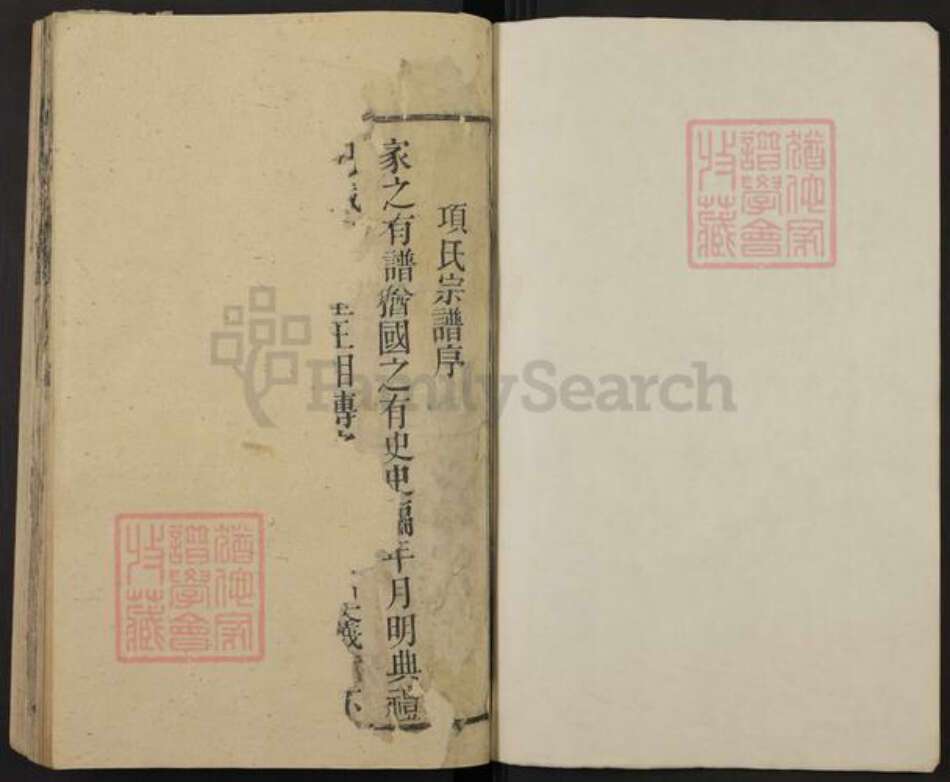 項氏宗譜序
家之有譜猶國之有史史編年月明典禮
王相傳
義
猶他家譜學會收藏
猶他家譜學會收藏
FamilySearch